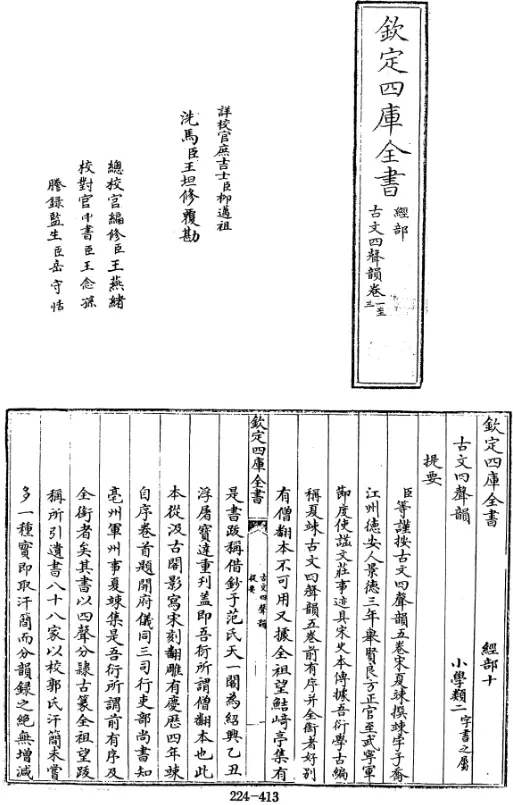 欽定四庫全書
經部
古文四聲韻卷一至三
詳校官庶吉士臣柳邁祖
洗馬臣王坦修覆勘
總校官編修臣王燕緒
校對官中書臣王念孫
謄錄監生臣岳守恬
欽定四庫全書 經部十
古文四聲韻 小學類二字書之屬
提要
臣等謹按古文四聲韻五卷宋夏竦撰竦字子喬
江州徳安人景徳三年舉賢良方正官至武寧軍
節度使諡文莊事迹具宋史本傳據吾衍學古編
稱夏竦古文四聲韻五卷前有序并全銜者好别
有僧翻本不可用又據全祖望鮚埼亭集有
欽定四庫全書
古文四聲韻
提要
是書䟦稱借鈔于范氏天一閣為紹興乙丑
浮屠寶達重刋盖即吾衍所謂僧翻本也此
本從汲古閣影寫宋刻翻雕有慶厯四年竦
自序卷首題開府儀同三司行吏部尚書知
亳州軍州事夏竦集是吾衍所謂前有序及
全銜者矣其書以四聲分𨽻古篆全祖望䟦
稱所引遺書八十八家以校郭氏汗簡未嘗
多一種實即取汗簡而分韻録之絶無增減
224-413